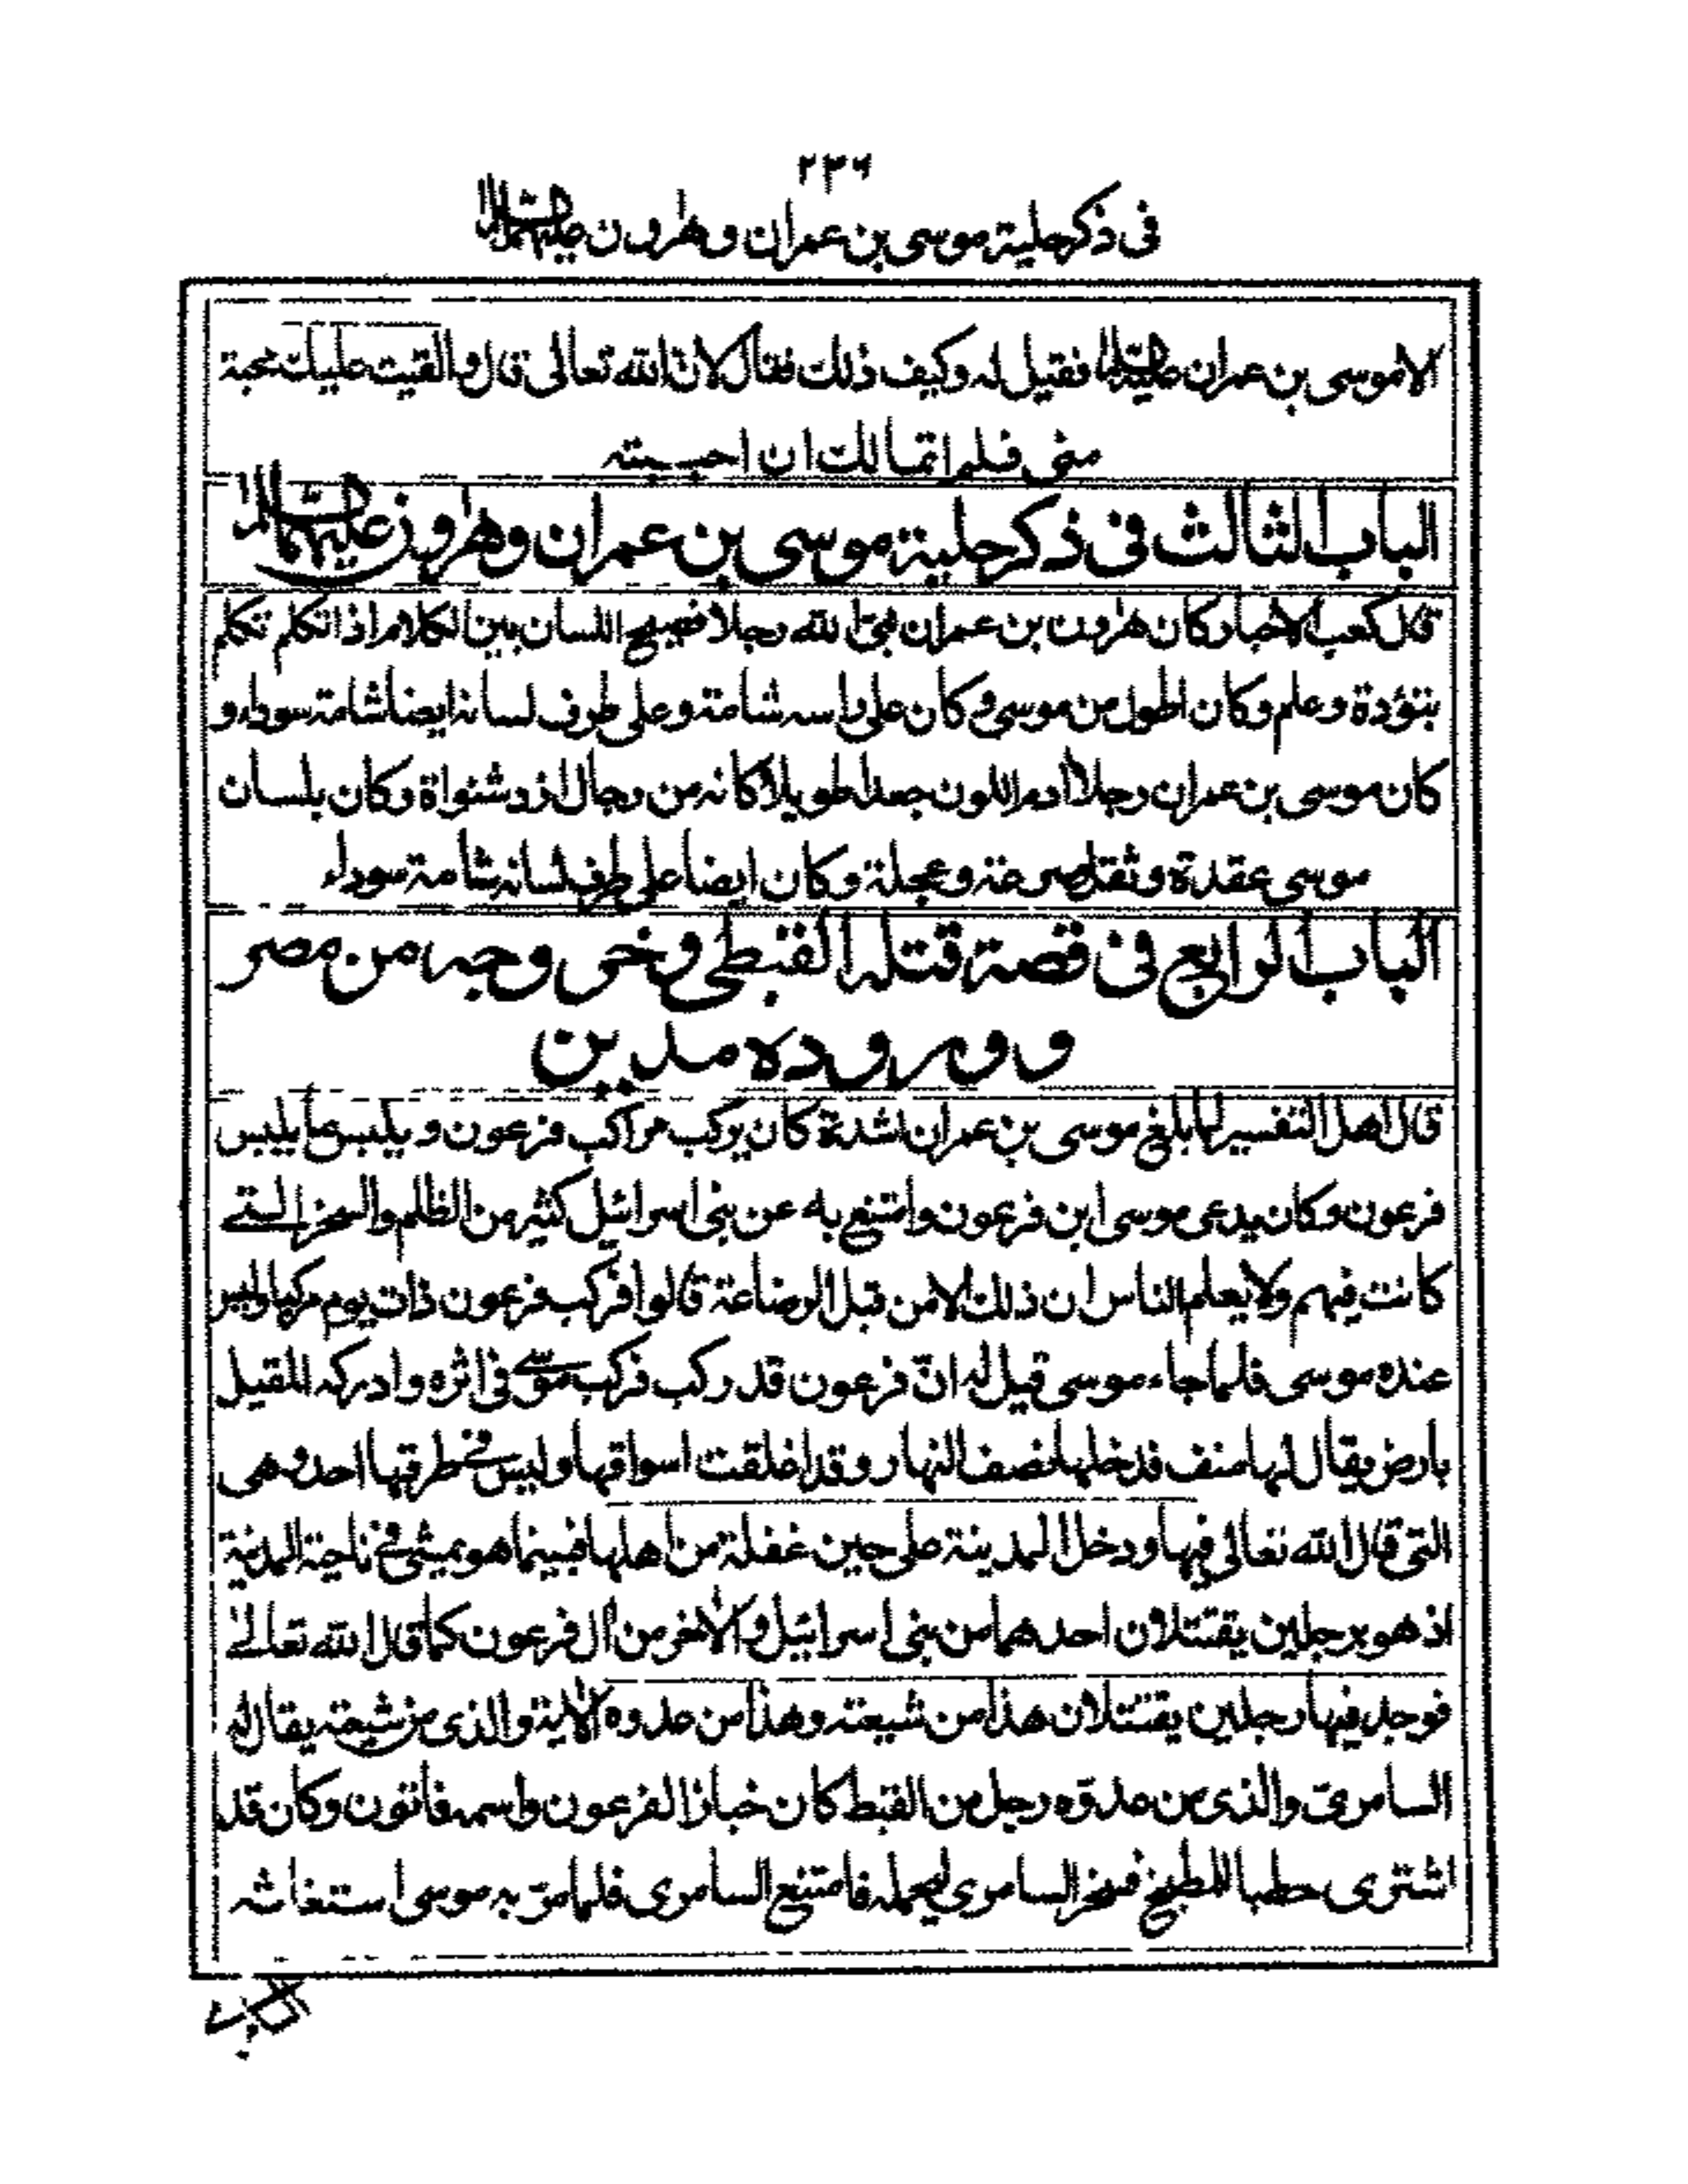 ٢٣٦
فى ذكر حلية موسى بن عمران وهٰرون عليهما السلام
الا موسى بن عمران عليه السلام فقيل له وكيف ذلك فقال لان الله تعالى قال والقيت عليك محبة
منى فلم اتمالك ان احببته
الباب الثالث فى ذكر حلية موسى بن عمران وهٰرون عليهما السلام
قال كعب الاحبار كان هٰرون بن عمران نبىّ الله رجلا فصيح اللسان بين الكلام اذا تكلم تكلم
بتؤدة وعلم وكان اطول من موسى وكان على راسه شامة وعلى طرف لسانه ايضا شامة سوداء و
كان موسى بن عمران رجلا ادم اللون جعدا طويلا كانه من رجال ازد شنواة وكان بلسان
موسى عقدة وثقل وسرعة وعجلة وكان ايضا على طرف لسانه شامة سوداء
الباب الرابع فى قصة قتله القبطى وخروجه من مصر
ووروده مدين
قال اهل التفسير لما بلغ موسى بن عمران اشده كان يركب مراكب فرعون ويلبس ما يلبس
فرعون وكان يدعى موسى ابن فرعون وامتنع به عن بنى اسرائيل كثير من الظلم والسخر التى
كانت فيهم ولا يعلم الناس ان ذلك الا من قبل الرضاعة قالوا فركب فرعون ذات يوم مركبا وليس
عنده موسى فلما جاء موسى قيل له انّ فرعون قد ركب فركب موسى فى اثره وادركه المقيل
بارض يقال لها منف فدخلها نصف النهار وقد اغلقت اسواقها وليس فى طرقها احد وهى
التى قال الله تعالى فيها ودخل المدينة على حين غفلة من اهلها فبينما هو يمشى فى ناحية المدينة
اذ هو برجلين يقتتلان احدهما من بنى اسرائيل والاٰخر من اٰل فرعون كما قال الله تعالى
فوجد فيها رجلين يقتتلان هذا من شيعته وهذا من عدوه الاٰية والذى من شيعته يقال له
السامرىّ والذى من عدوّه رجل من القبط كان خبازا لفرعون واسمه فاتون وكان قد
اشترى حطبا للمطبخ فسخر السامرى ليحمله فامتنع السامرى فلما مرّ به موسى استغاثه